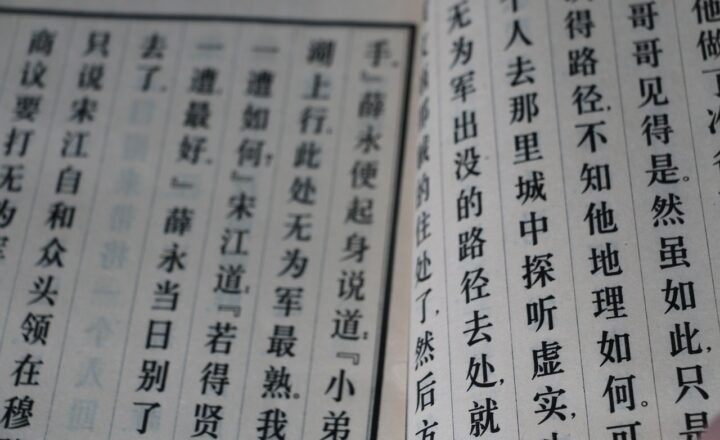 他做了
哥哥见得是。然虽如此,只是
得路径,不知他地理如何。可
个人去那里城中探听虚实,
无为军出没的路径去处,就
的住处了,然后方
手。』薛永便起身说道:『小弟
湖上行,此处无为军最熟。我
一遭如何?』宋江道:『若得贤
一遭,最好。』薛永当日别了
去了。
只说宋江自和众头领在穆
商议要打无为军